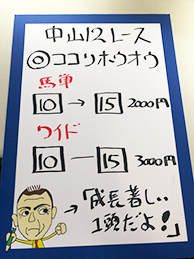 中山12レース
◎ココリホウオウ
馬単
10 → 15 2000円
ワイド
10 — 15 3000円
→「成長著しい
1頭だよ!」